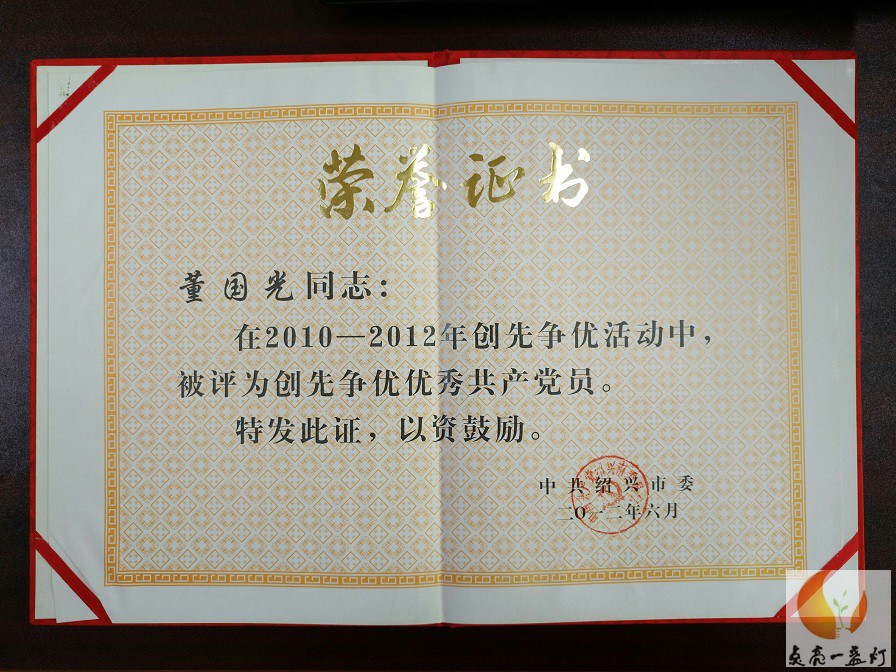 荣誉证书
董国光同志：
在2010—2012年创先争优活动中，
被评为创先争优优秀共产党员。
特发此证，以资鼓励。
中共绍兴市委
二〇一二年六月
点亮一盏灯